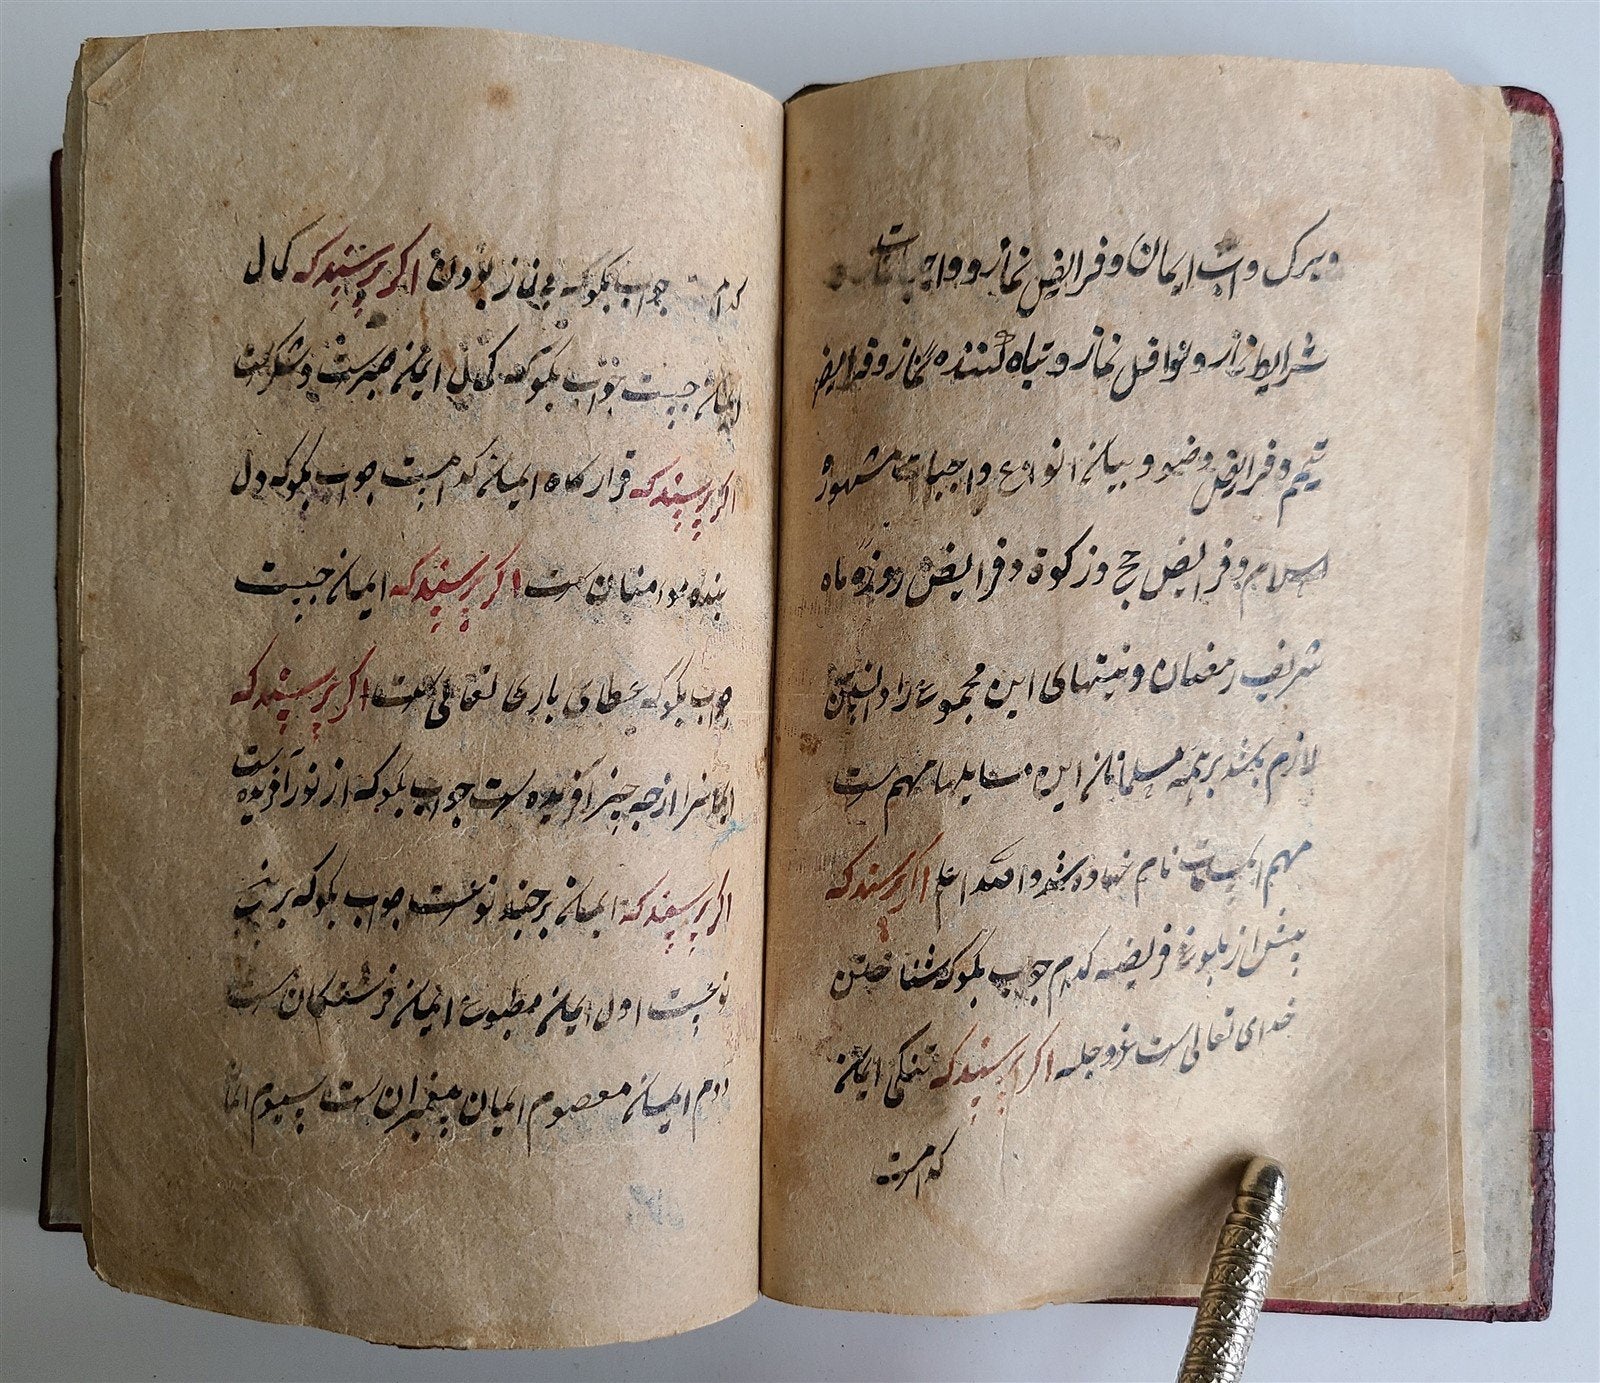 و برک و اثبات ایمان و فرایض نماز و واجبات نماز و
شرایط نماز و نوافل نماز و تباه کننده نماز و فرایض
تیمم و فرایض وضو و بیان انواع واجبات مشهوره
اسلام و فرایض حج و زکوة و فرایض روزه ماه
شریف رمضان و نیتهای این مجموع را دانستن
لازم باشد بر همه مسلمانان این مسایلها مهم ست
مهم نام نهاده شد والله اعلم اکر پرسند که
پیش از بلوغ فریضه کدام جواب بکو که شناختن
خدای تعالی ست عز و جله اکر پرسند که تنکی ایمان
کدامست
کدامست جواب بکو که بی نماز بودن اکر پرسند که کمال
ایمان چیست جواب بکو که کمال ایمان صبرست و شکرست
اکر پرسند که قرارکاه ایمان کدامست جواب بکو که دل
بنده موامنان ست اکر پرسند که ایمان چیست
جواب بکو که عطای باری تعالی ست اکر پرسند که
ایمانرا از چه چیز آفریده ست جواب بکو که از نور آفریده ست
اکر پرسند که ایمان بر چند نوعست جواب بکو که بر پنج
نوعست اول ایمان مطبوع ایمان فرشتکان ست
دوم ایمان معصوم ایمان پیغمبران ست سیوم ایمان